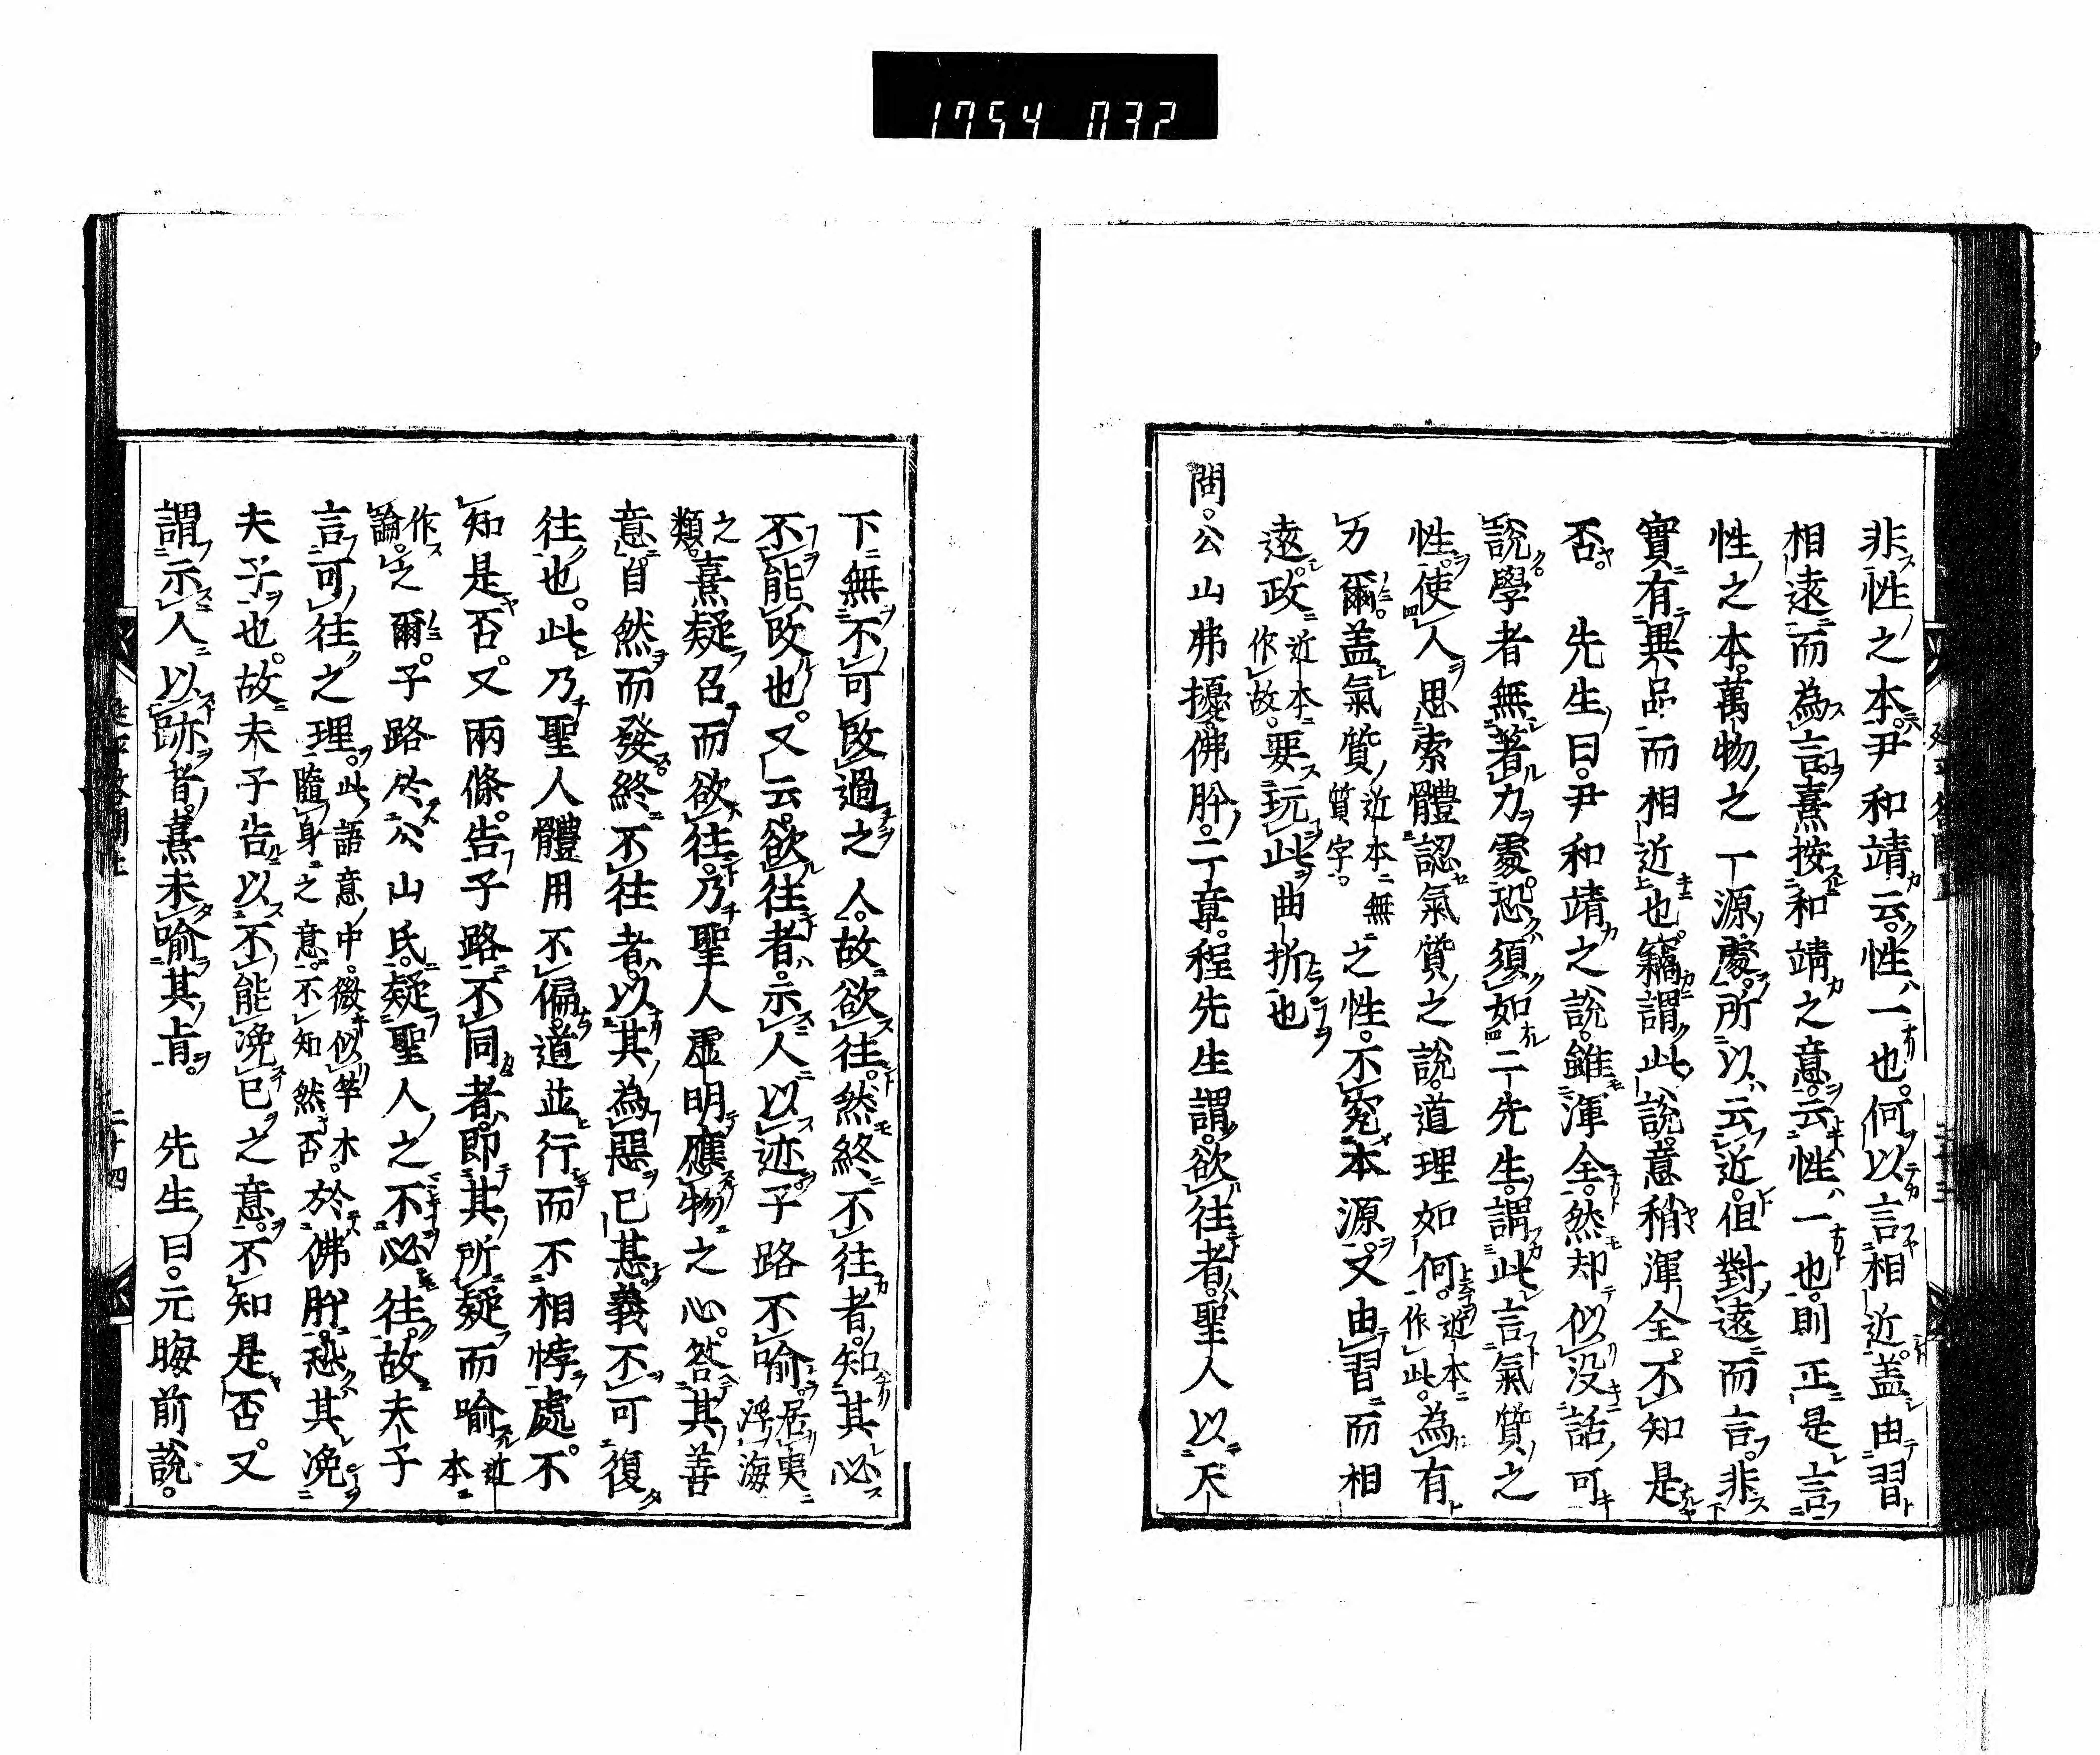 1754 032
非性之本。尹和靖云。性一也。何以言相近。盖由習
相遠而為言。熹按和靖之意。云性一也。則正是言
性之本。萬物之一源處。所以云近。但對遠而言。非
實有異品而相近也。竊謂此說意稍渾全。不知是
否。 先生曰。尹和靖之說。雖渾全。然却似没話可
說。學者無著力處。恐須如二先生謂此言氣質之
性。使人思索體認氣質之說。道理如何。近本作此。為有
力爾。盖氣質近本無質字。之性。不究本源。又由習而相
遠。政近本作故。要玩此曲折也
問。公山弗擾。佛肸。二章。程先生謂。欲往者。聖人以天
下無不可改過之人。故欲往。然終不往者。知其必
不能改也。又云。欲往者。示人以迹。子路不喻。居夷浮海
之類。熹疑召而欲往。乃聖人虛明應物之心。答其善
意。自然而發。終不往者。以其為惡已甚。義不可復
往也。此乃聖人體用不偏。道並行而不相悖處。不
知是否。又兩條。告子路不同者。即其所疑而喻近本
作論。之爾。子路於公山氏。疑聖人之不必往。故夫子
言可往之理。此語意中。微似竿木隨身之意。不知然否。於佛肸。恐其浼
夫子也。故夫子告以不能浼已之意。不知是否。又
謂示人以跡者。熹未喻其肯。 先生曰。元晦前說。
二十四